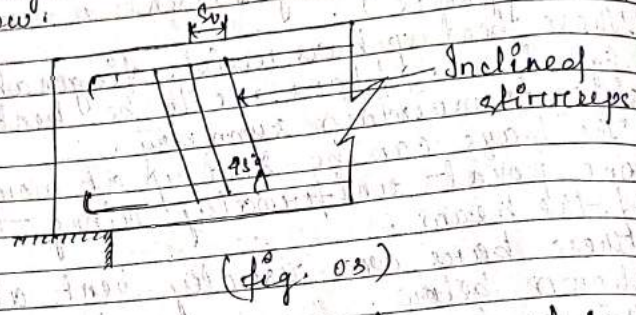 Sv
Inclined
stirreups
45°
(fig. 03)